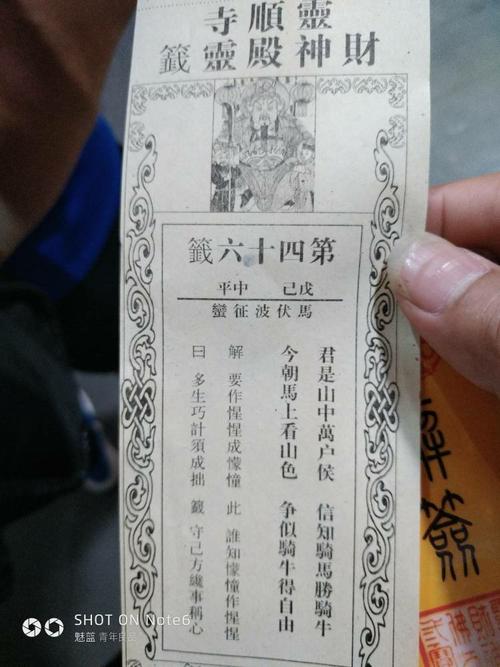 靈順寺
財神殿靈籤
第四十六籤
戊己 中平
馬伏波征蠻
君是山中萬户侯 信知騎馬勝騎牛
今朝馬上看山色 争似騎牛得自由
解 要作惺惺成懞憧 此 誰知懞憧作惺惺
曰 多生巧計須成拙 籤 守己方纔事稱心
解簽
SHOT ON Note6
魅蓝 青年良品